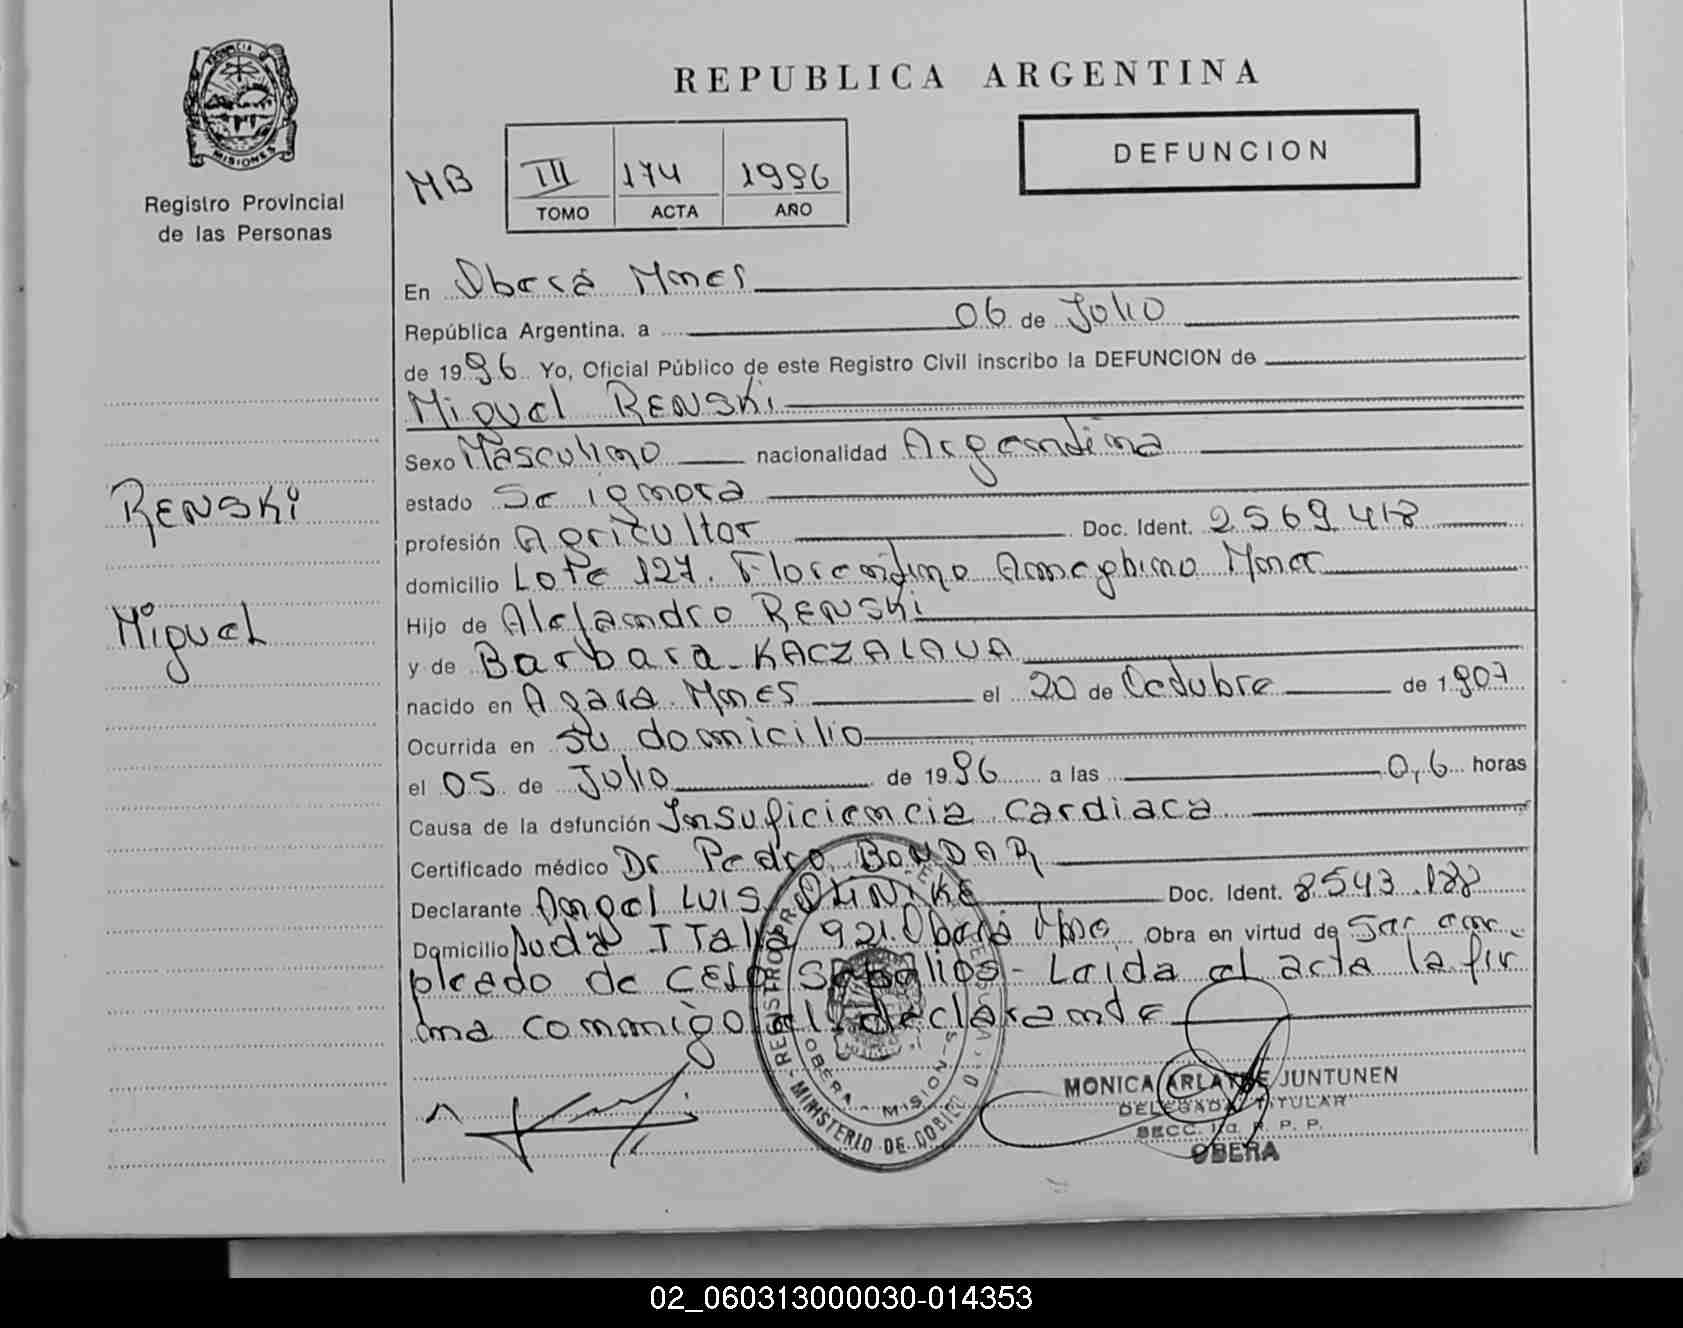 PROVINCIA DE
MISIONES
Registro Provincial
de las Personas
REPUBLICA ARGENTINA
DEFUNCION
MB
III 174 1996
TOMO ACTA AÑO
En Oberá Mnes
República Argentina, a 06 de Julio
de 1996 Yo, Oficial Público de este Registro Civil inscribo la DEFUNCION de
Miguel RENSKi
Sexo Masculino nacionalidad Argentina
estado Se ignora
profesión Agricultor Doc. Ident. 2569418
domicilio Lote 127. Florentino Ameghino Mnes
Hijo de Alejandro RENSKi
y de Barbara KACZALAUA
nacido en Azara Mnes el 20 de Octubre de 1907
Ocurrida en su domicilio
el 05 de Julio de 1996 a las 0,6 horas
Causa de la defunción Insuficiencia Cardiaca
Certificado médico Dr Pedro BONDAR
Declarante Angel LUIS Doc. Ident. 8543.188
Domicilio Avda ITalia 921 Oberá Mnes Obra en virtud de Ser em
pleado de Leida el acta la fir
ma conmigo el declarante
RENSKi
Miguel
MINISTERIO DE GOBIERNO
OBERA - MISIONES
MONICA ARLAYNE JUNTUNEN
DELEGADA TITULAR
SECC. 1ra. R. P. P.
OBERA
02_060313000030-014353